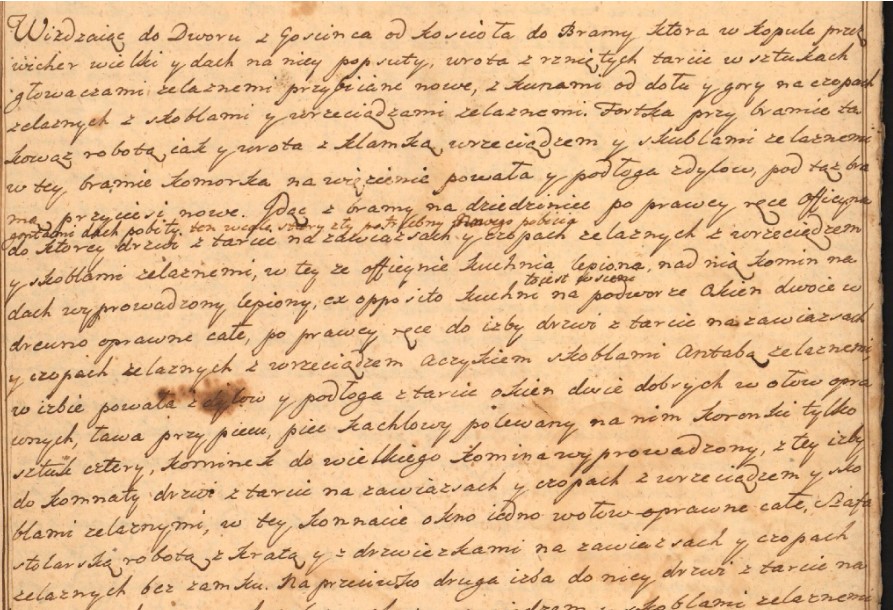 Wiezdzaiąc do Dworu z Goscinca od Koscioła do Bramy ktora w kopule przez
wicher wielki y dach na niey popsuty, wrota z rzniętych tarcic w sztukach
głowaczami zelaznemi przybiciane nowe, z kunami od dołu y gory na czopach
zelaznych z skoblami y wrzeciądzami zelaznemi. Fortka przy bramie ta
kowaz robotą iak y wrota z klamką wrzeciądzem y skublami zelaznemi
w tey bramie komorka na więzienie powała y podłoga z dylow, pod taz bra
mą przyciesi nowe. Idąc z bramy na dziedziniec po prawey ręce officyna
gontami dach pobity, ten wielce stary zły potrzebny nowego pobicia
do ktorey drzwi z tarcic na zawiasach y czopach zelaznych z wrzeciądzem
y skoblami zelaznemi, w tey ze officynie kuchnia lepiona, nad nią komin na
to jest w sieni
dach wyprowadzony lepiony, ex opposito kuchni na podworze okien dwoie w
drewno oprawne całe, po prawey ręce do izby drzwi z tarcic na zawiasach
y czopach zelaznych z wrzeciądzem Aczykiem skoblami Antabą zelaznemi
w izbie powała z dylow y podłoga z tarcic okien dwie dobrych w ołow opra
wnych, ława przy piecu, piec kachlowy polewany na nim koronki tylko
sztuk cztery, kominek do wielkiego komina wyprowadzony, z tey izby
do komnaty drzwi z tarcic na zawiasach y czopach z wrzeciądzem y sko
blami zelaznymi, w tey komnacie okno iedno w ołow oprawne całe, Szafa
stolarską robotą z kratą y z drzwiczkami na zawiasach y czopach
zelaznych bez zamku. Na przeciwko druga izba do niey drzwi z tarcic na
skoblami zelaznemi